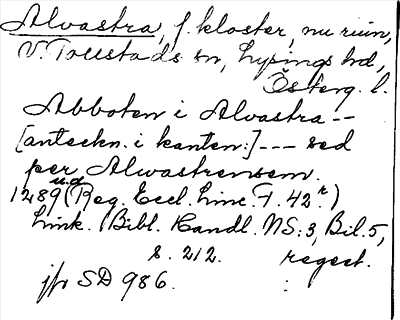 Alvastra, f. kloster, nu ruin,
V. Tollstads sn, Lysings hd,
Österg. l.
Abboten i Alvastra --
[anteckn. i kanten:] --- sed
per Alwastrensem.
u.d.
1289 (Reg. Eccl. Linc. F. 42r.)
Link. Bibl. Handl. NS: 3, Bil. 5,
s. 212. regest.
jfr SD 986.